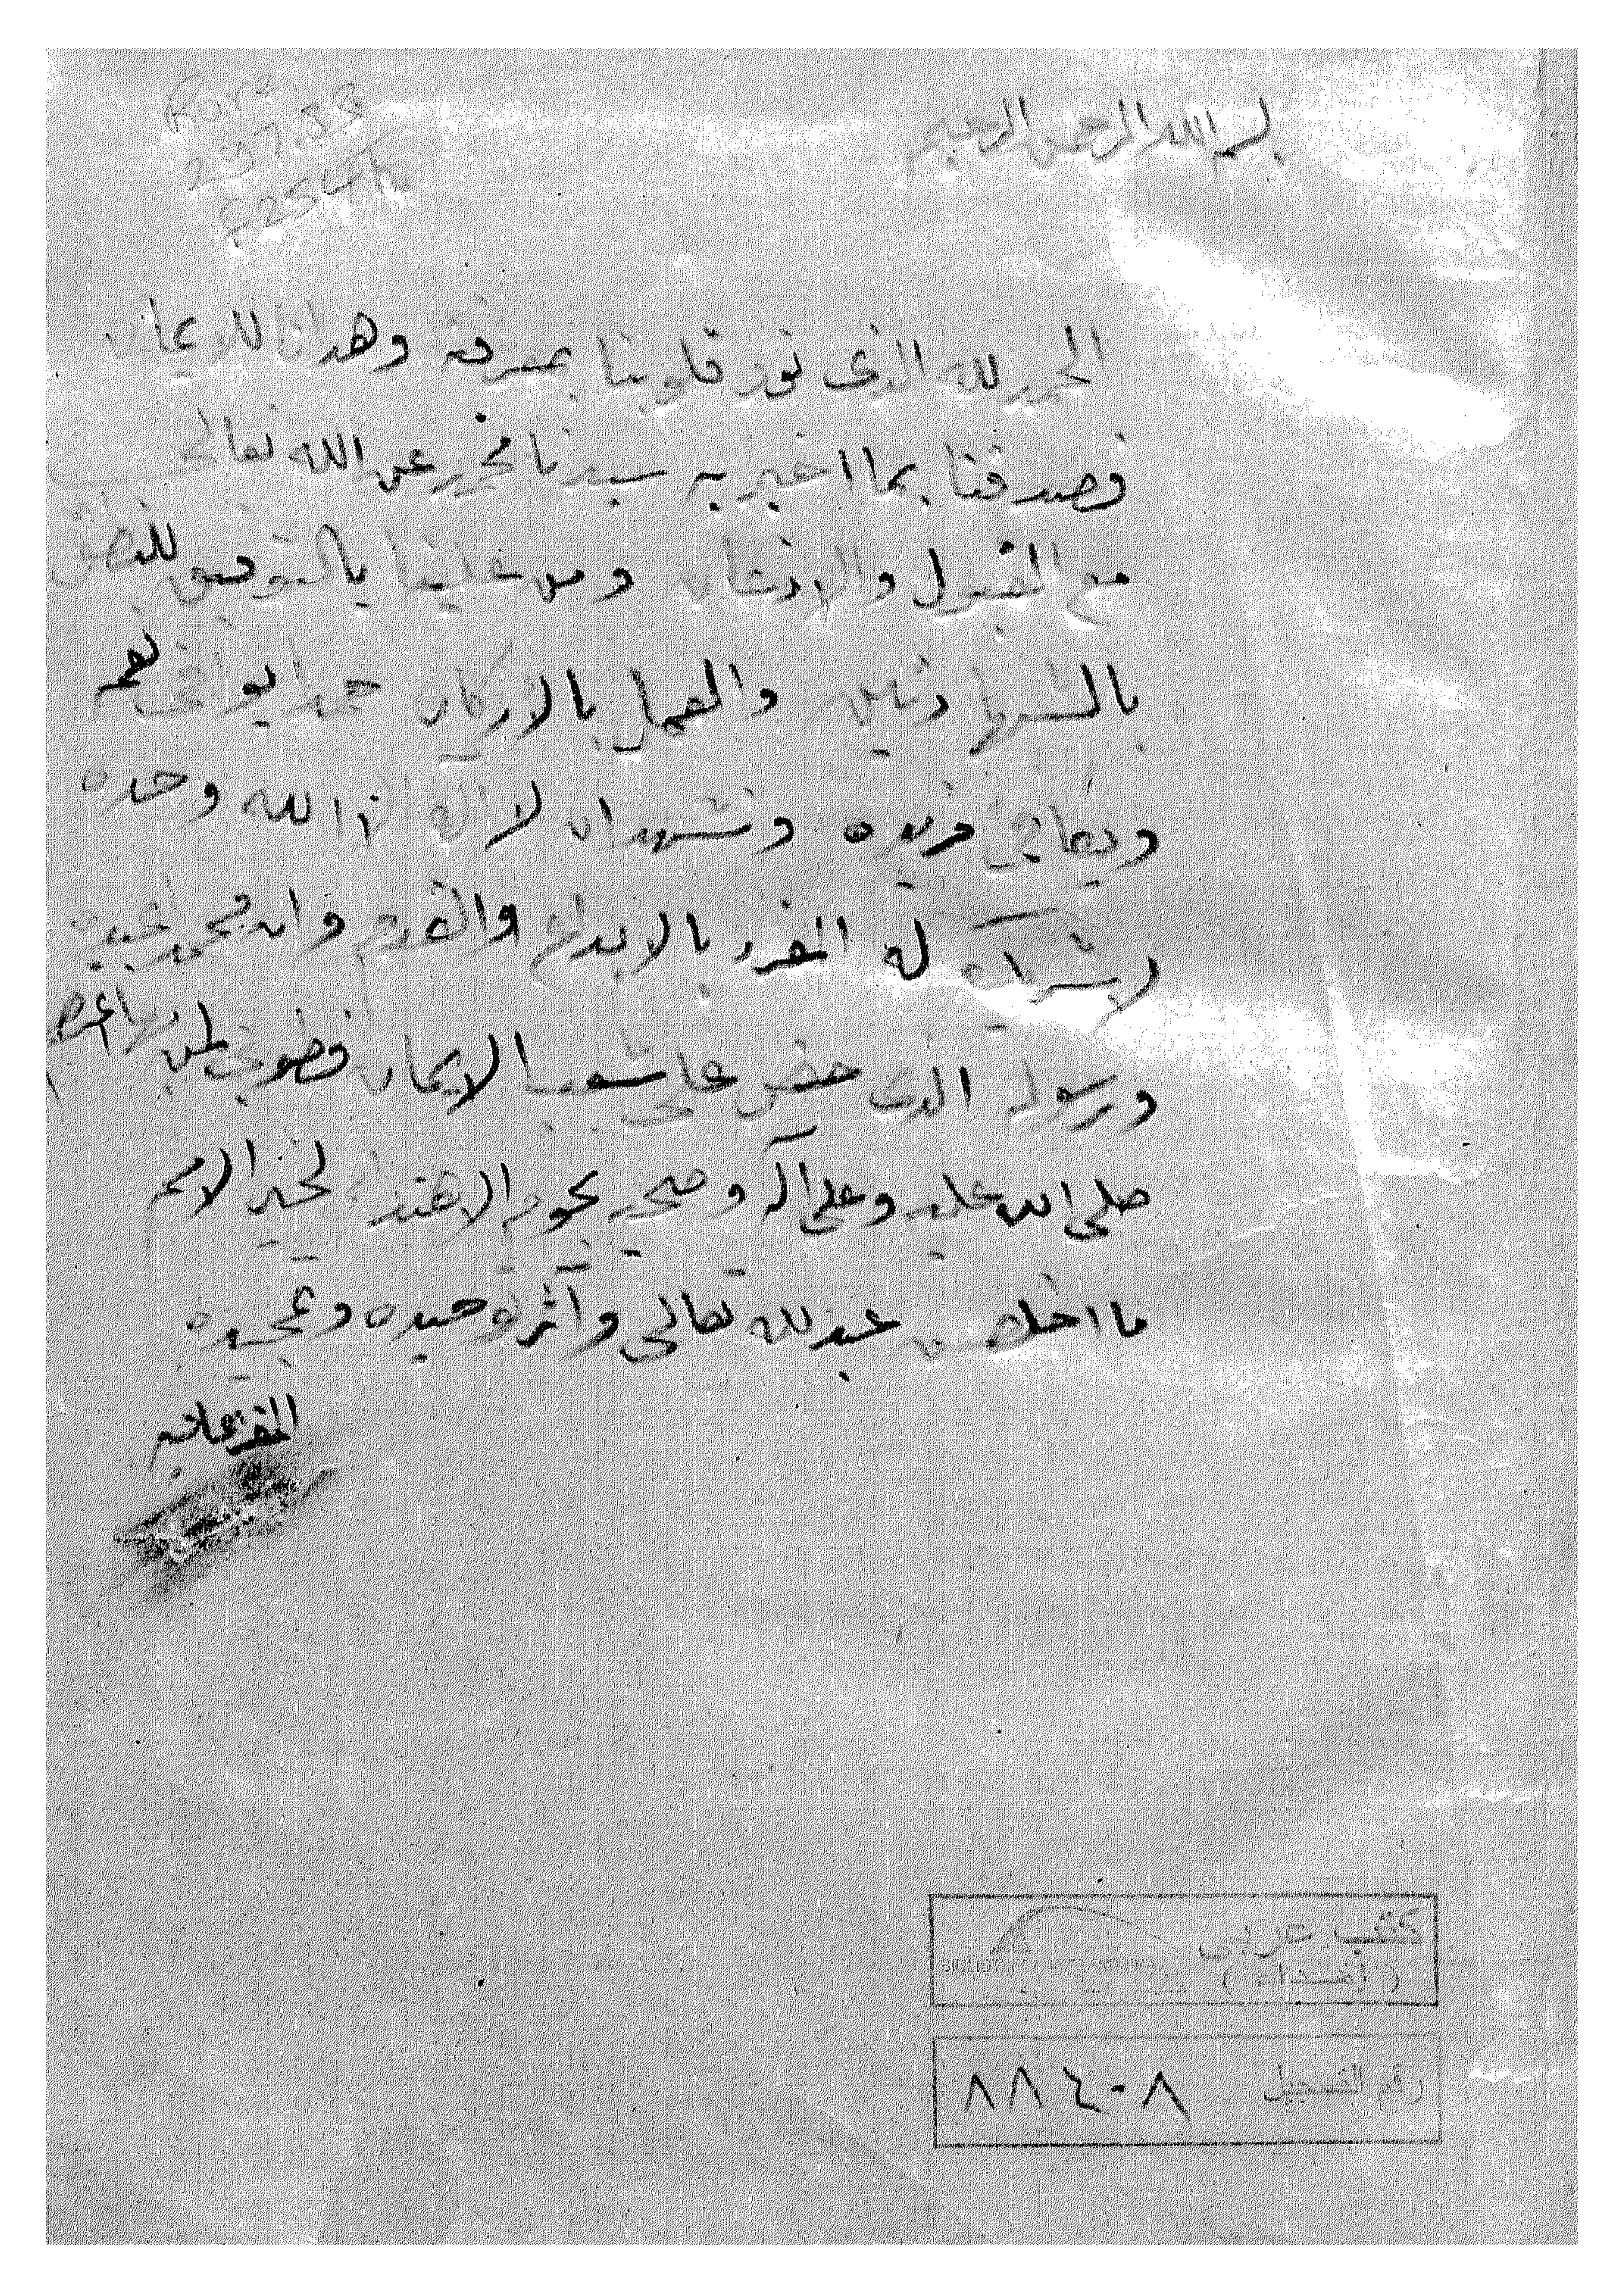 بسم الله الرحمن الرحيم
الحمد لله الذى نور قلوبنا بمعرفته وهدانا للايمان
فصدقنا بما اخبر به سيدنا محمد عن الله تعالى
مع القبول والاذعان ومن علينا بالتوفيق للنطق
بالشهادتين والعمل بالاركان حمدا يوافى نعمه
ويكافئ مزيده ونشهد ان لا اله الا الله وحده
لا شريك له المنفرد بالابداع والقدم وان محمدا عبده
ورسوله الذى حض على شعب الايمان فطوبى لمن بها اعتصم
صلى الله عليه وعلى آله وصحبه نجوم الاهتداء لخير الامم
ما اخلص عبد لله تعالى وآثر توحيده وتمجيده
كتب عربى
( إهداء )
رقم التسجيل ٨٨٤٠٨